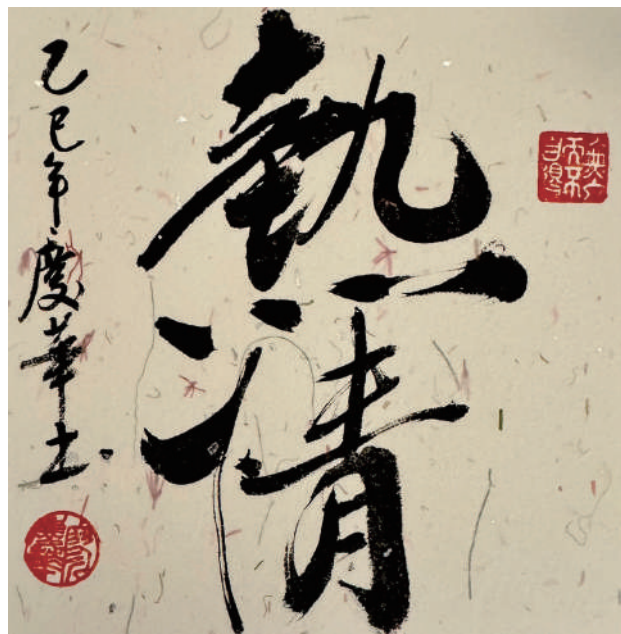 熱情
乙巳年慶華書